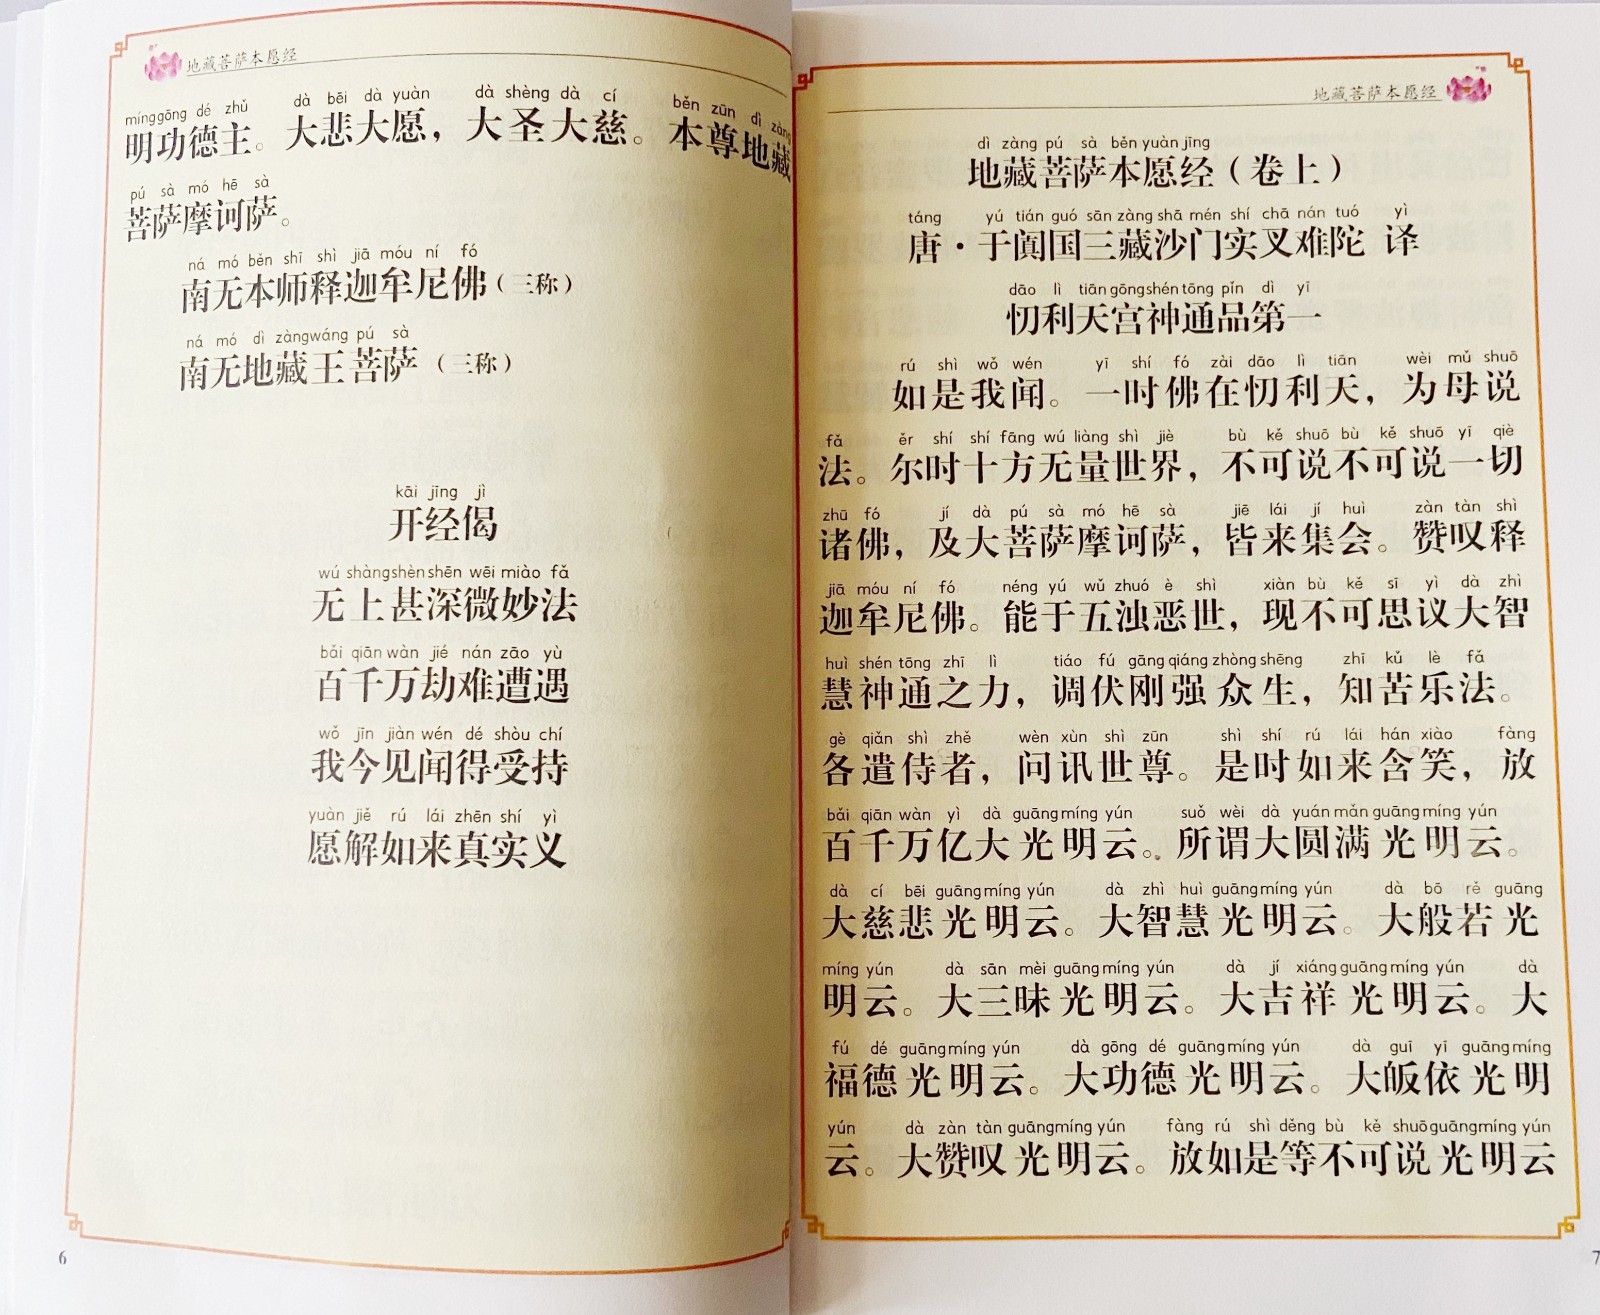 地藏菩萨本愿经
mínggōng dé zhǔ dà bēi dà yuàn dà shèng dà cí běn zūn dì zàng
明功德主。大悲大愿，大圣大慈。本尊地藏
pú sà mó hē sà
菩萨摩诃萨。
ná mó běn shī shì jiā móu ní fó
南无本师释迦牟尼佛（三称）
ná mó dì zàngwáng pú sà
南无地藏王菩萨（三称）
kāi jīng jì
开经偈
wú shàngshènshēn wēi miào fǎ
无上甚深微妙法
bǎi qiān wàn jié nán zāo yù
百千万劫难遭遇
wǒ jīn jiàn wén dé shòu chí
我今见闻得受持
yuàn jiě rú lái zhēn shí yì
愿解如来真实义
6
地藏菩萨本愿经
dì zàng pú sà běn yuàn jīng
地藏菩萨本愿经（卷上）
táng yú tián guó sān zàng shā mén shí chā nán tuó yì
唐·于阗国三藏沙门实叉难陀 译
dāo lì tiān gōngshén tōng pín dì yī
忉利天宫神通品第一
rú shì wǒ wén yī shí fó zài dāo lì tiān wèi mǔ shuō
如是我闻。一时佛在忉利天，为母说
fǎ ěr shí shí fāng wú liàng shì jiè bù kě shuō bù kě shuō yī qiè
法。尔时十方无量世界，不可说不可说一切
zhū fó jí dà pú sà mó hē sà jiē lái jí huì zàn tàn shì
诸佛，及大菩萨摩诃萨，皆来集会。赞叹释
jiā móu ní fó néng yú wǔ zhuó è shì xiàn bù kě sī yì dà zhì
迦牟尼佛。能于五浊恶世，现不可思议大智
huì shén tōng zhī lì tiáo fú gāng qiáng zhòng shēng zhī kǔ lè fǎ
慧神通之力，调伏刚强众生，知苦乐法。
gè qiǎn shì zhě wèn xùn shì zūn shì shí rú lái hán xiào fàng
各遣侍者，问讯世尊。是时如来含笑，放
bǎi qiān wàn yì dà guāng míng yún suǒ wèi dà yuán mǎn guāng míng yún
百千万亿大光明云。。所谓大圆满光明云。
dà cí bēi guāng míng yún dà zhì huì guāng míng yún dà bō rě guāng
大慈悲光明云。大智慧光明云。大般若光
míng yún dà sān mèi guāng míng yún dà jí xiáng guāng míng yún dà
明云。大三昧光明云。大吉祥光明云。大
fú dé guāng míng yún dà gōng dé guāng míng yún dà guī yī guāng míng
福德光明云。大功德光明云。大皈依光明
yún dà zàn tàn guāngmíng yún fàng rú shì děng bù kě shuō guāngmíng yún
云。大赞叹光明云。放如是等不可说光明云
7